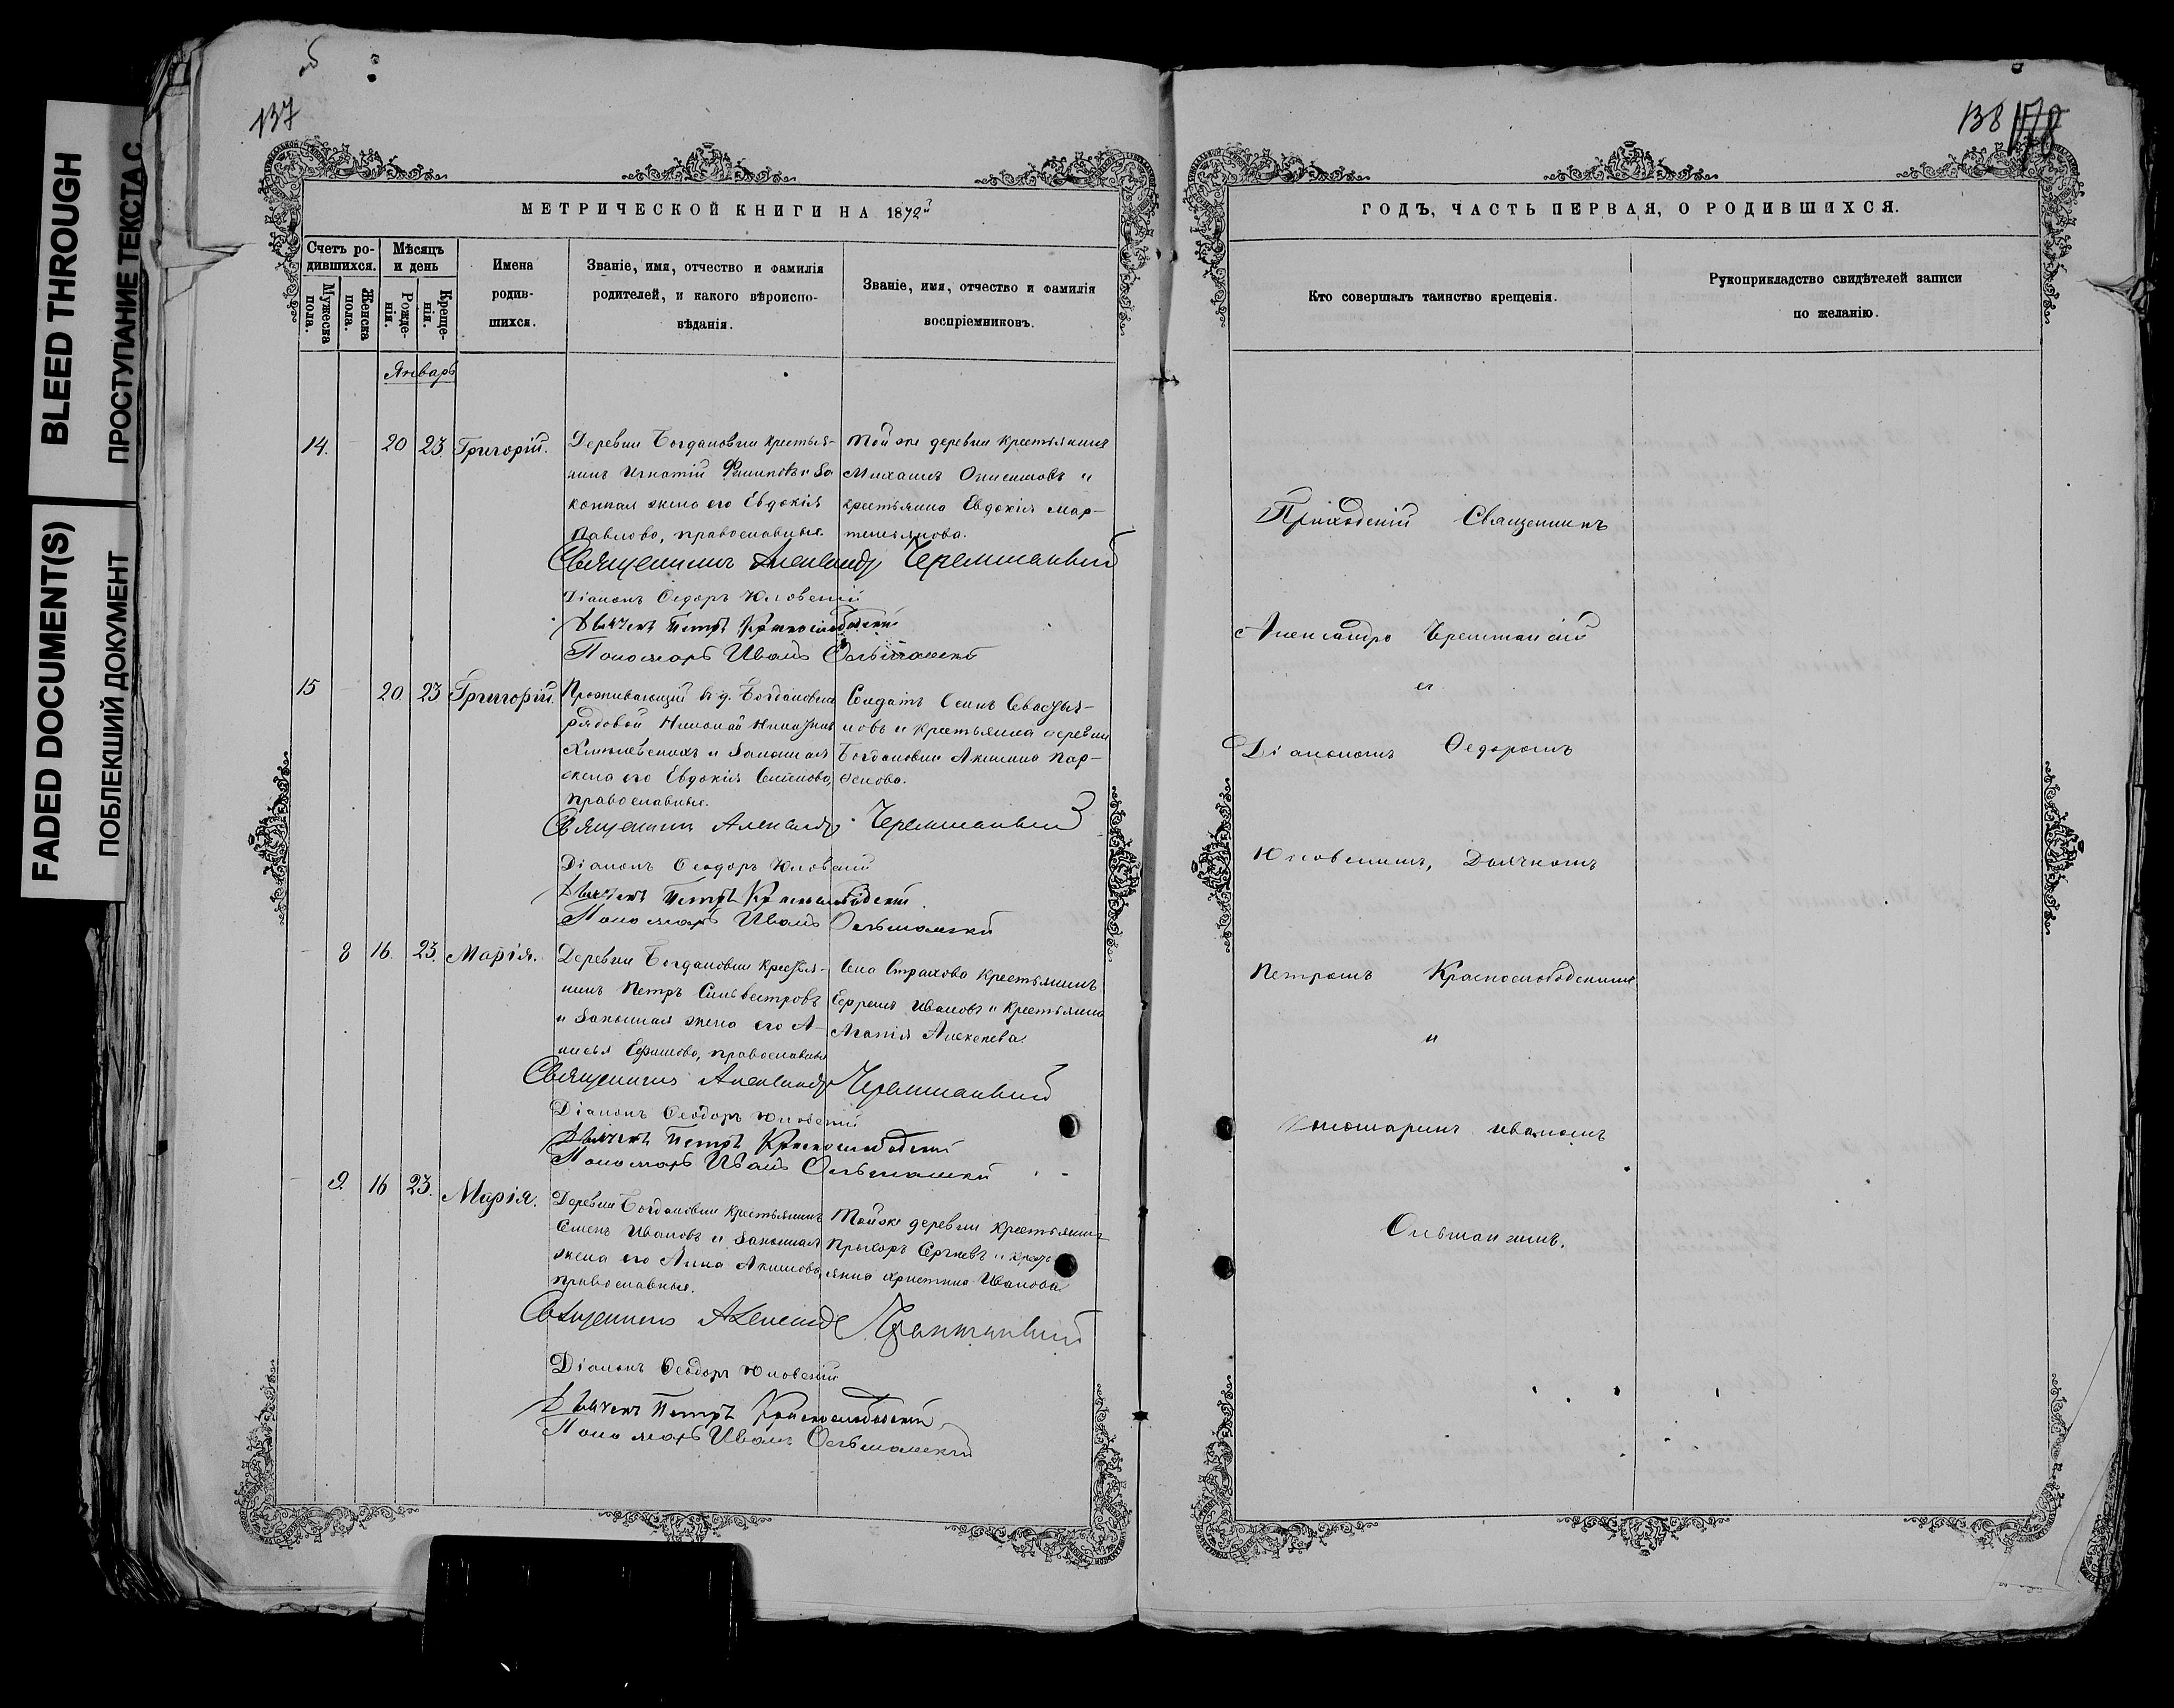 BLEED THROUGH
ПРОСТУПАНИЕ ТЕКСТА С
FADED DOCUMENT(S)
ПОБЛЕКШИЙ ДОКУМЕНТ
137
МЕТРИЧЕСКОЙ КНИГИ НА 1872й
Счетъ родившихся.
Мужеска пола.
Женска пола.
Мѣсяцъ и день
Рожденія.
Крещенія.
Имена родившихся.
Званіе, имя, отчество и фамилія
родителей, и какого вѣроиспо-
вѣданія.
Званіе, имя, отчество и фамилія
воспріемниковъ.
Январь
14. 20 23. Григорій.
Деревни Богдановки крестья-
нинъ Игнатій Филиповъ и за
конная жена его Евдокія
Павлова, православные.
Той же деревни крестьянинъ
Михаилъ Онисимовъ и
крестьянка Евдокія Мар-
темьянова.
Священникъ Александръ Черемшанскій
Діаконъ Ѳедоръ Юловскій
Дьячекъ Петръ Краснослободскій
Пономарь Иванъ Ольшанскій
15 20 23 Григорій.
Проживающій въ д. Богдановки
рядовой Николай
и законная
жена его Евдокія Семенова,
православные.
Солдатъ Осипъ Севастья-
новъ и крестьянка деревни
Богдановки Акилина Пар-
фенова.
Священникъ Александръ Черемшанскій
Діаконъ Ѳеодоръ Юловскій
Дьячекъ Петръ Краснослободскій
Пономарь Иванъ Ольшанскій
8 16. 23. Марія.
Деревни Богдановки крестья-
нинъ Петръ Сильвестровъ
и законная жена его А-
нисья Ефимова, православные
Села Страхова крестьянинъ
Ефремъ Ивановъ и крестьянка
Агапія Алексеева.
Священникъ Александръ Черемшанскій
Діаконъ Ѳеодоръ Юловскій
Дьячекъ Петръ Краснослободскій
Пономарь Иванъ Ольшанскій
9. 16 23. Марія.
Деревни Богдановки крестьянинъ
Семенъ Ивановъ и законная
жена его Анна Акимова,
православные.
Той же деревни крестьянинъ
Сергѣевъ и кресть
янка Христина Иванова
Священникъ Александръ Черемшанскій
Діаконъ Ѳеодоръ Юловскій
Дьячекъ Петръ Краснослободскій
Пономарь Иванъ Ольшанскій
138
ГОДЪ, ЧАСТЬ ПЕРВАЯ, О РОДИВШИХСЯ.
Кто совершалъ таинство крещенія.
Рукоприкладство свидѣтелей записи
по желанію.
Приходскій Священникъ
Александръ Черемшанскій
съ
Діакономъ Ѳедоромъ
Юловскимъ, Дьячкомъ
Петромъ Краснослободскимъ
и
Пономаремъ Иваномъ
Ольшанскимъ.